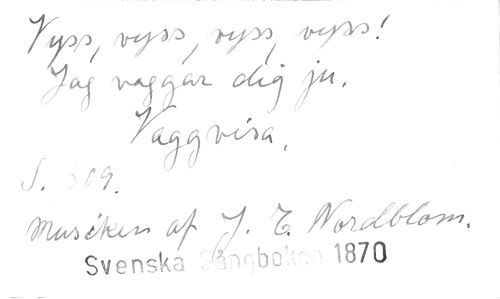 Vyss, vyss, vyss, vyss!
Jag vaggar dig ju.
Vaggvisa.
S. 309.
Musiken af J. E. Nordblom.
Svenska Sångboken 1870